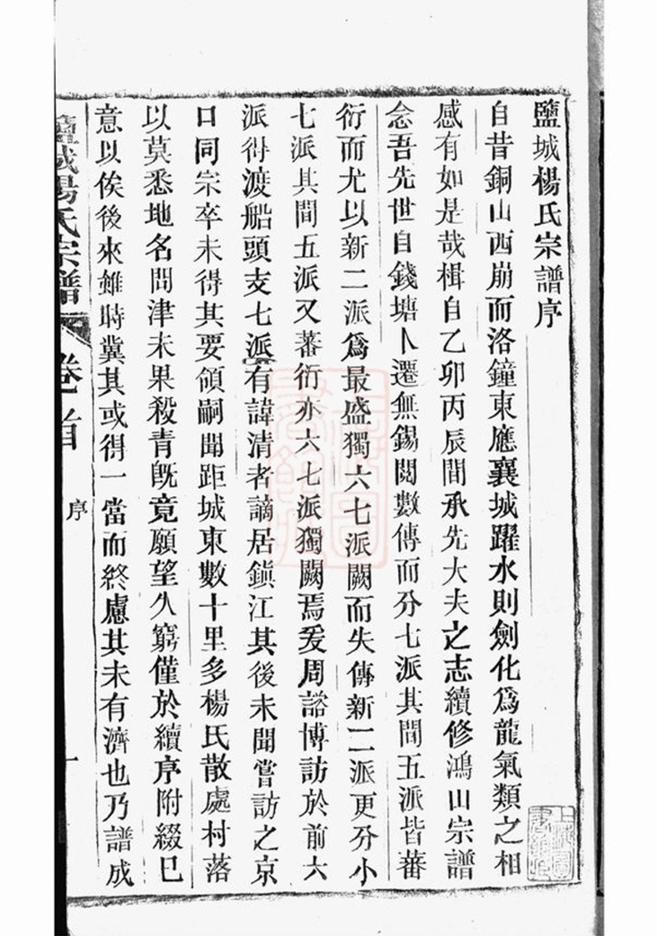 鹽城楊氏宗譜序
自昔銅山西崩而洛鐘東應襄城躍水則劍化爲龍氣類之相
感有如是哉楫自乙卯丙辰間承先大夫之志續修鴻山宗譜
念吾先世自錢塘卜遷無錫閱數傳而分七派其間五派皆蕃
衍而尤以新二派爲最盛獨六七派闕而失傳新二派更分小
七派其間五派又蕃衍亦六七派獨闕焉爰周諮博訪於前六
派得渡船頭支七派有諱清者謫居鎮江其後未聞嘗訪之京
口同宗卒未得其要領嗣聞距城東數十里多楊氏散處村落
以莫悉地名問津未果殺青旣竟願望乆窮僅於續序附綴巳
意以俟後來雖時冀其或得一當而終慮其未有濟也乃譜成
鹽城楊氏宗譜
卷首
序
一